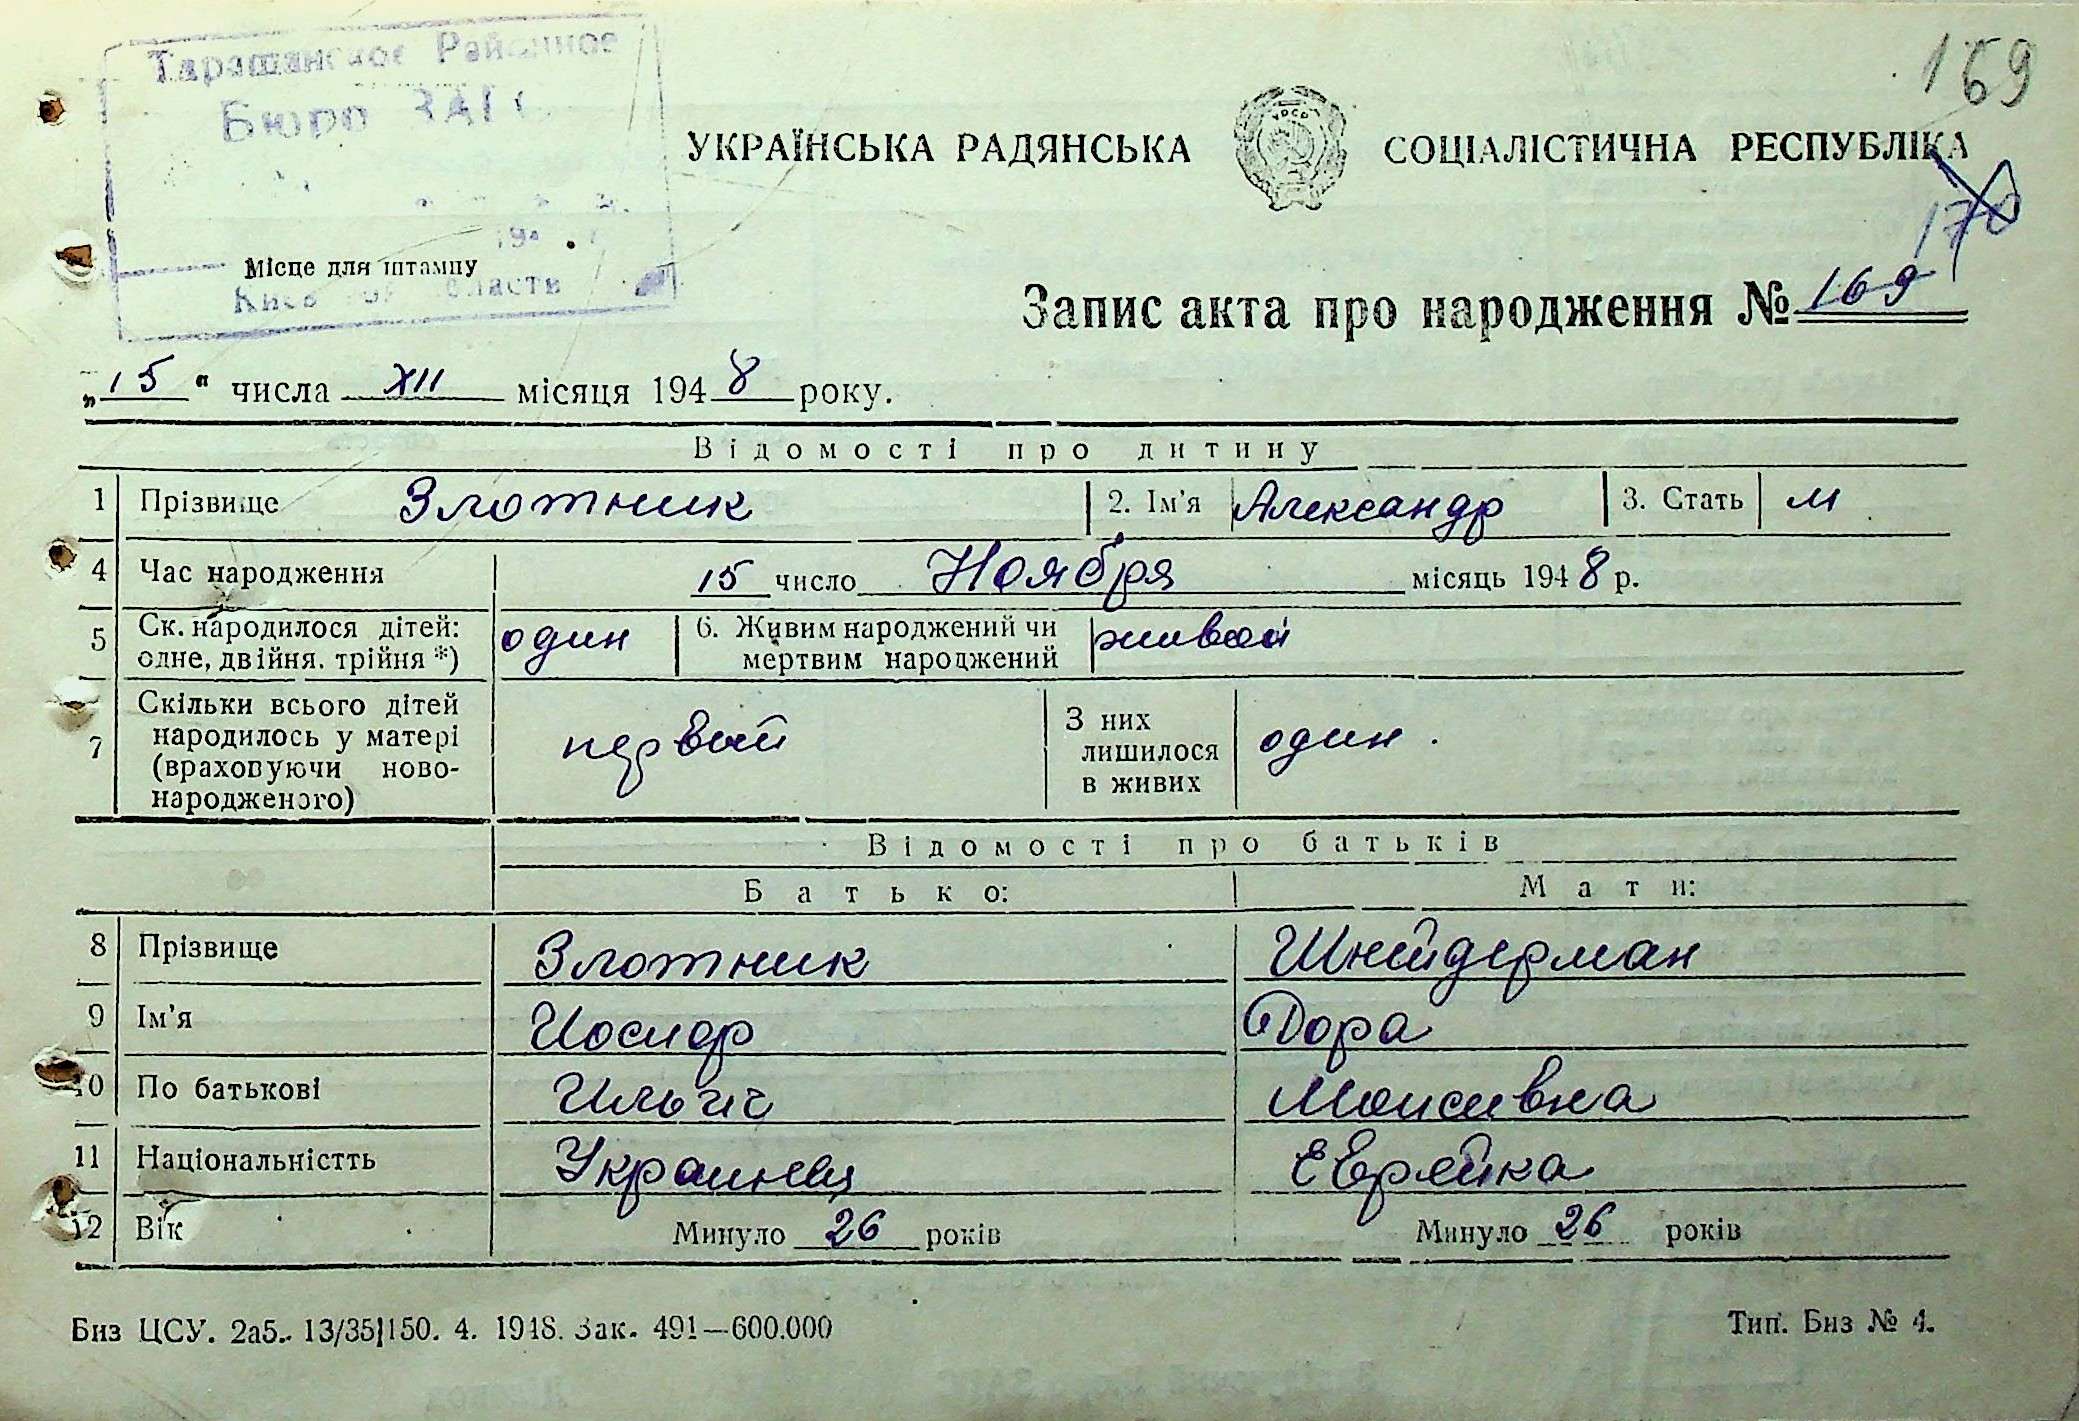 169
Таращанское Районное
Бюро ЗАГС
УКРАЇНСЬКА РАДЯНСЬКА СОЦІАЛІСТИЧНА РЕСПУБЛІКА
УРСР
170
Місце для штампу
области
Запис акта про народження № 169
„15“ числа XII місяця 1948 року.
Відомості про дитину
1 Прізвище Злотник 2. Ім'я Александр 3. Стать м
4 Час народження 15 число Ноября місяць 1948 р.
5 Ск. народилося дітей: один 6. Живим народжений чи живой
одне, двійня. трійня *) мертвим народжений
Скільки всього дітей З них
7 народилось у матері первый лишилося один.
(враховуючи ново- в живих
народженого)
Відомості про батьків
Батько: Мати:
8 Прізвище Злотник Шнейдерман
9 Ім'я Иосиф Дора
10 По батькові Ильич Моисивна
11 Національністть Украинец Еврейка
12 Вік Минуло 26 років Минуло 26 років
Биз ЦСУ. 2а5.. 13/35|150. 4. 1948. Зак. 491—600.000 Тип. Биз № 4.